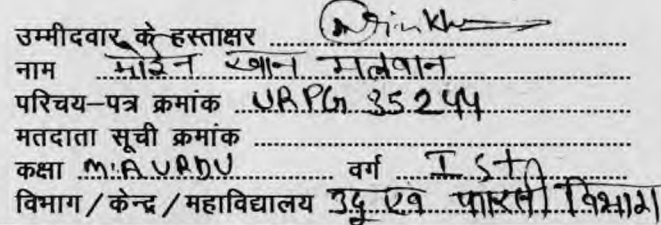 उम्मीदवार के हस्ताक्षर
नाम मोईन खान मलवान
परिचय–पत्र क्रमांक URPG 35244
मतदाता सूची क्रमांक
कक्षा M.A URDU वर्ग I St
विभाग / केन्द्र / महाविद्यालय उर्दू एवं फारसी विभाग